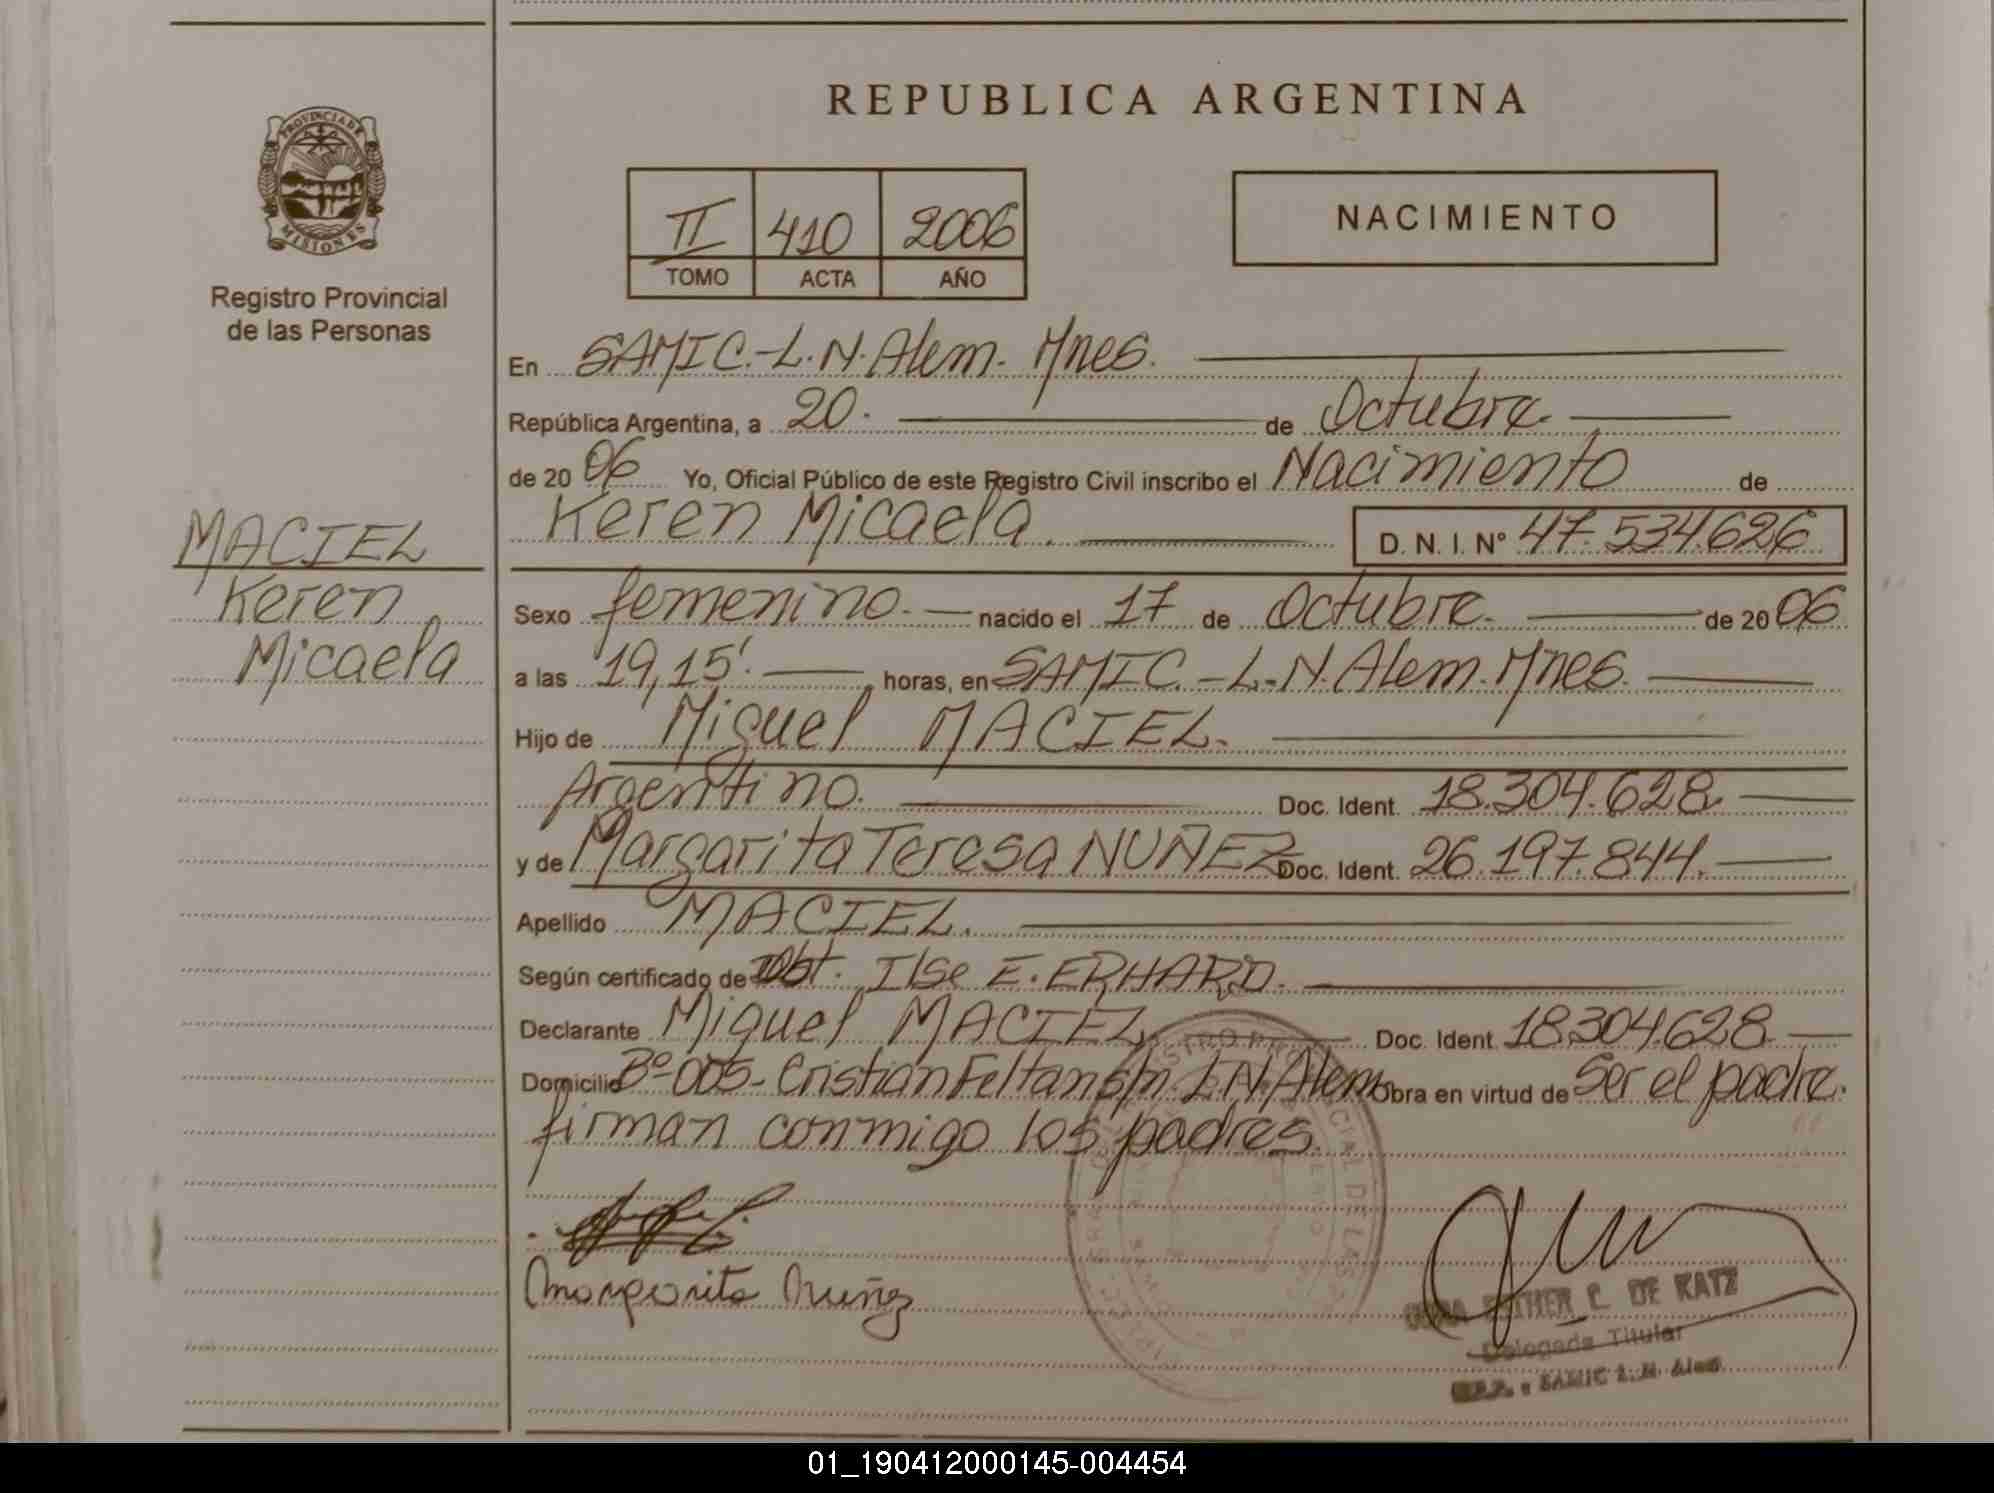 PROVINCIA DE
MISIONES
Registro Provincial
de las Personas
MACIEL
Keren
Micaela
REPUBLICA ARGENTINA
II 410 2006
TOMO ACTA AÑO
NACIMIENTO
En SAMIC.-L.N.Alem. Mnes.
República Argentina, a 20. de Octubre
de 20 06 Yo, Oficial Público de este Registro Civil inscribo el Nacimiento de
Keren Micaela. D. N. I. Nº 47.534.626
Sexo femenino. nacido el 17 de Octubre. de 20 06
a las 19,15'. horas, en SAMIC.-L.N.Alem.Mnes.
Hijo de Miguel MACIEL.
Argentino. Doc. Ident. 18.304.628.
y de Margarita Teresa NUÑEZ Doc. Ident. 26.197.844.
Apellido MACIEL.
Según certificado de Obt. Ilse E. ERHARD.
Declarante Miguel MACIEL Doc. Ident. 18.304.628
Domicilio Bº 005- Cristian Feltan s/n L N Alem Obra en virtud de Ser el padre.
firman conmigo los padres.
Margarita Nuñez
ESTHER C. DE KATZ
Delegada Titular
R.P.P. - SAMIC L. N. Alem
01_190412000145-004454